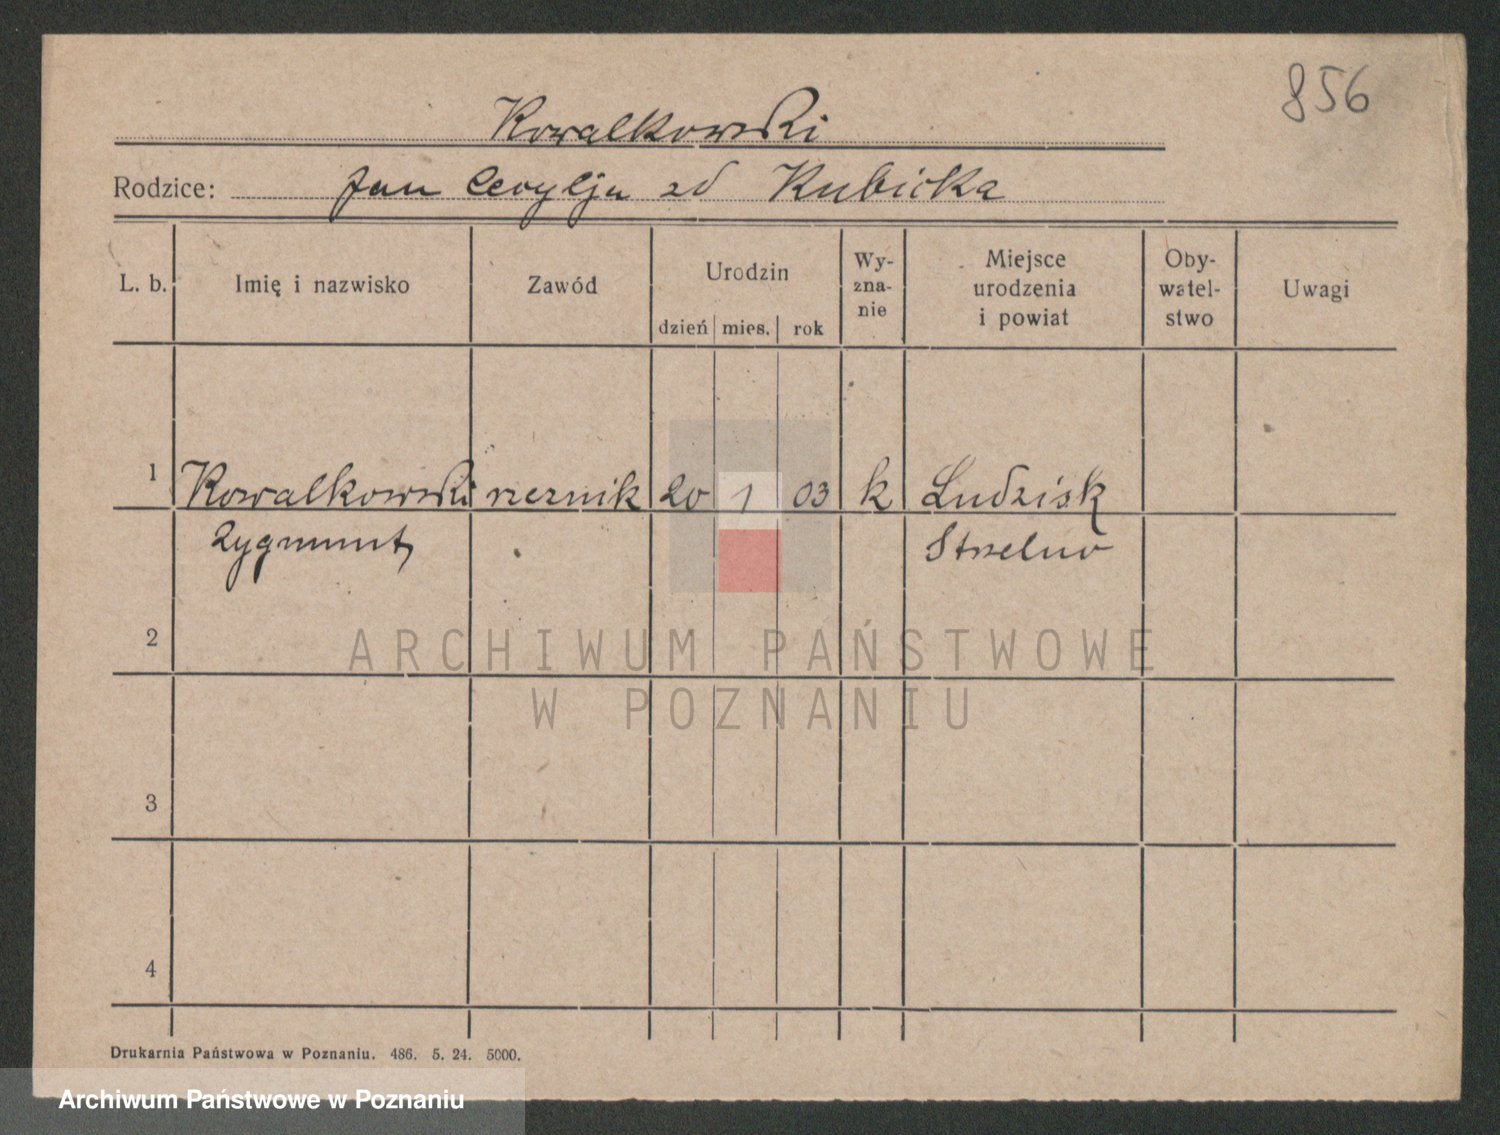 856
Kowalkowski
Rodzice: Jan Cecylja zd Kubicka
L. b. Imię i nazwisko Zawód Urodzin dzień mies. rok Wy-zna-nie Miejsce urodzenia i powiat Oby-watel-stwo Uwagi
1 Kowalkowski rzeznik 20 1 03 k Ludzisk
Zygmunt Strzelno
2
ARCHIWUM PAŃSTWOWE
W POZNANIU
3
4
Drukarnia Państwowa w Poznaniu. 486. 5. 24. 5000.
Archiwum Państwowe w Poznaniu